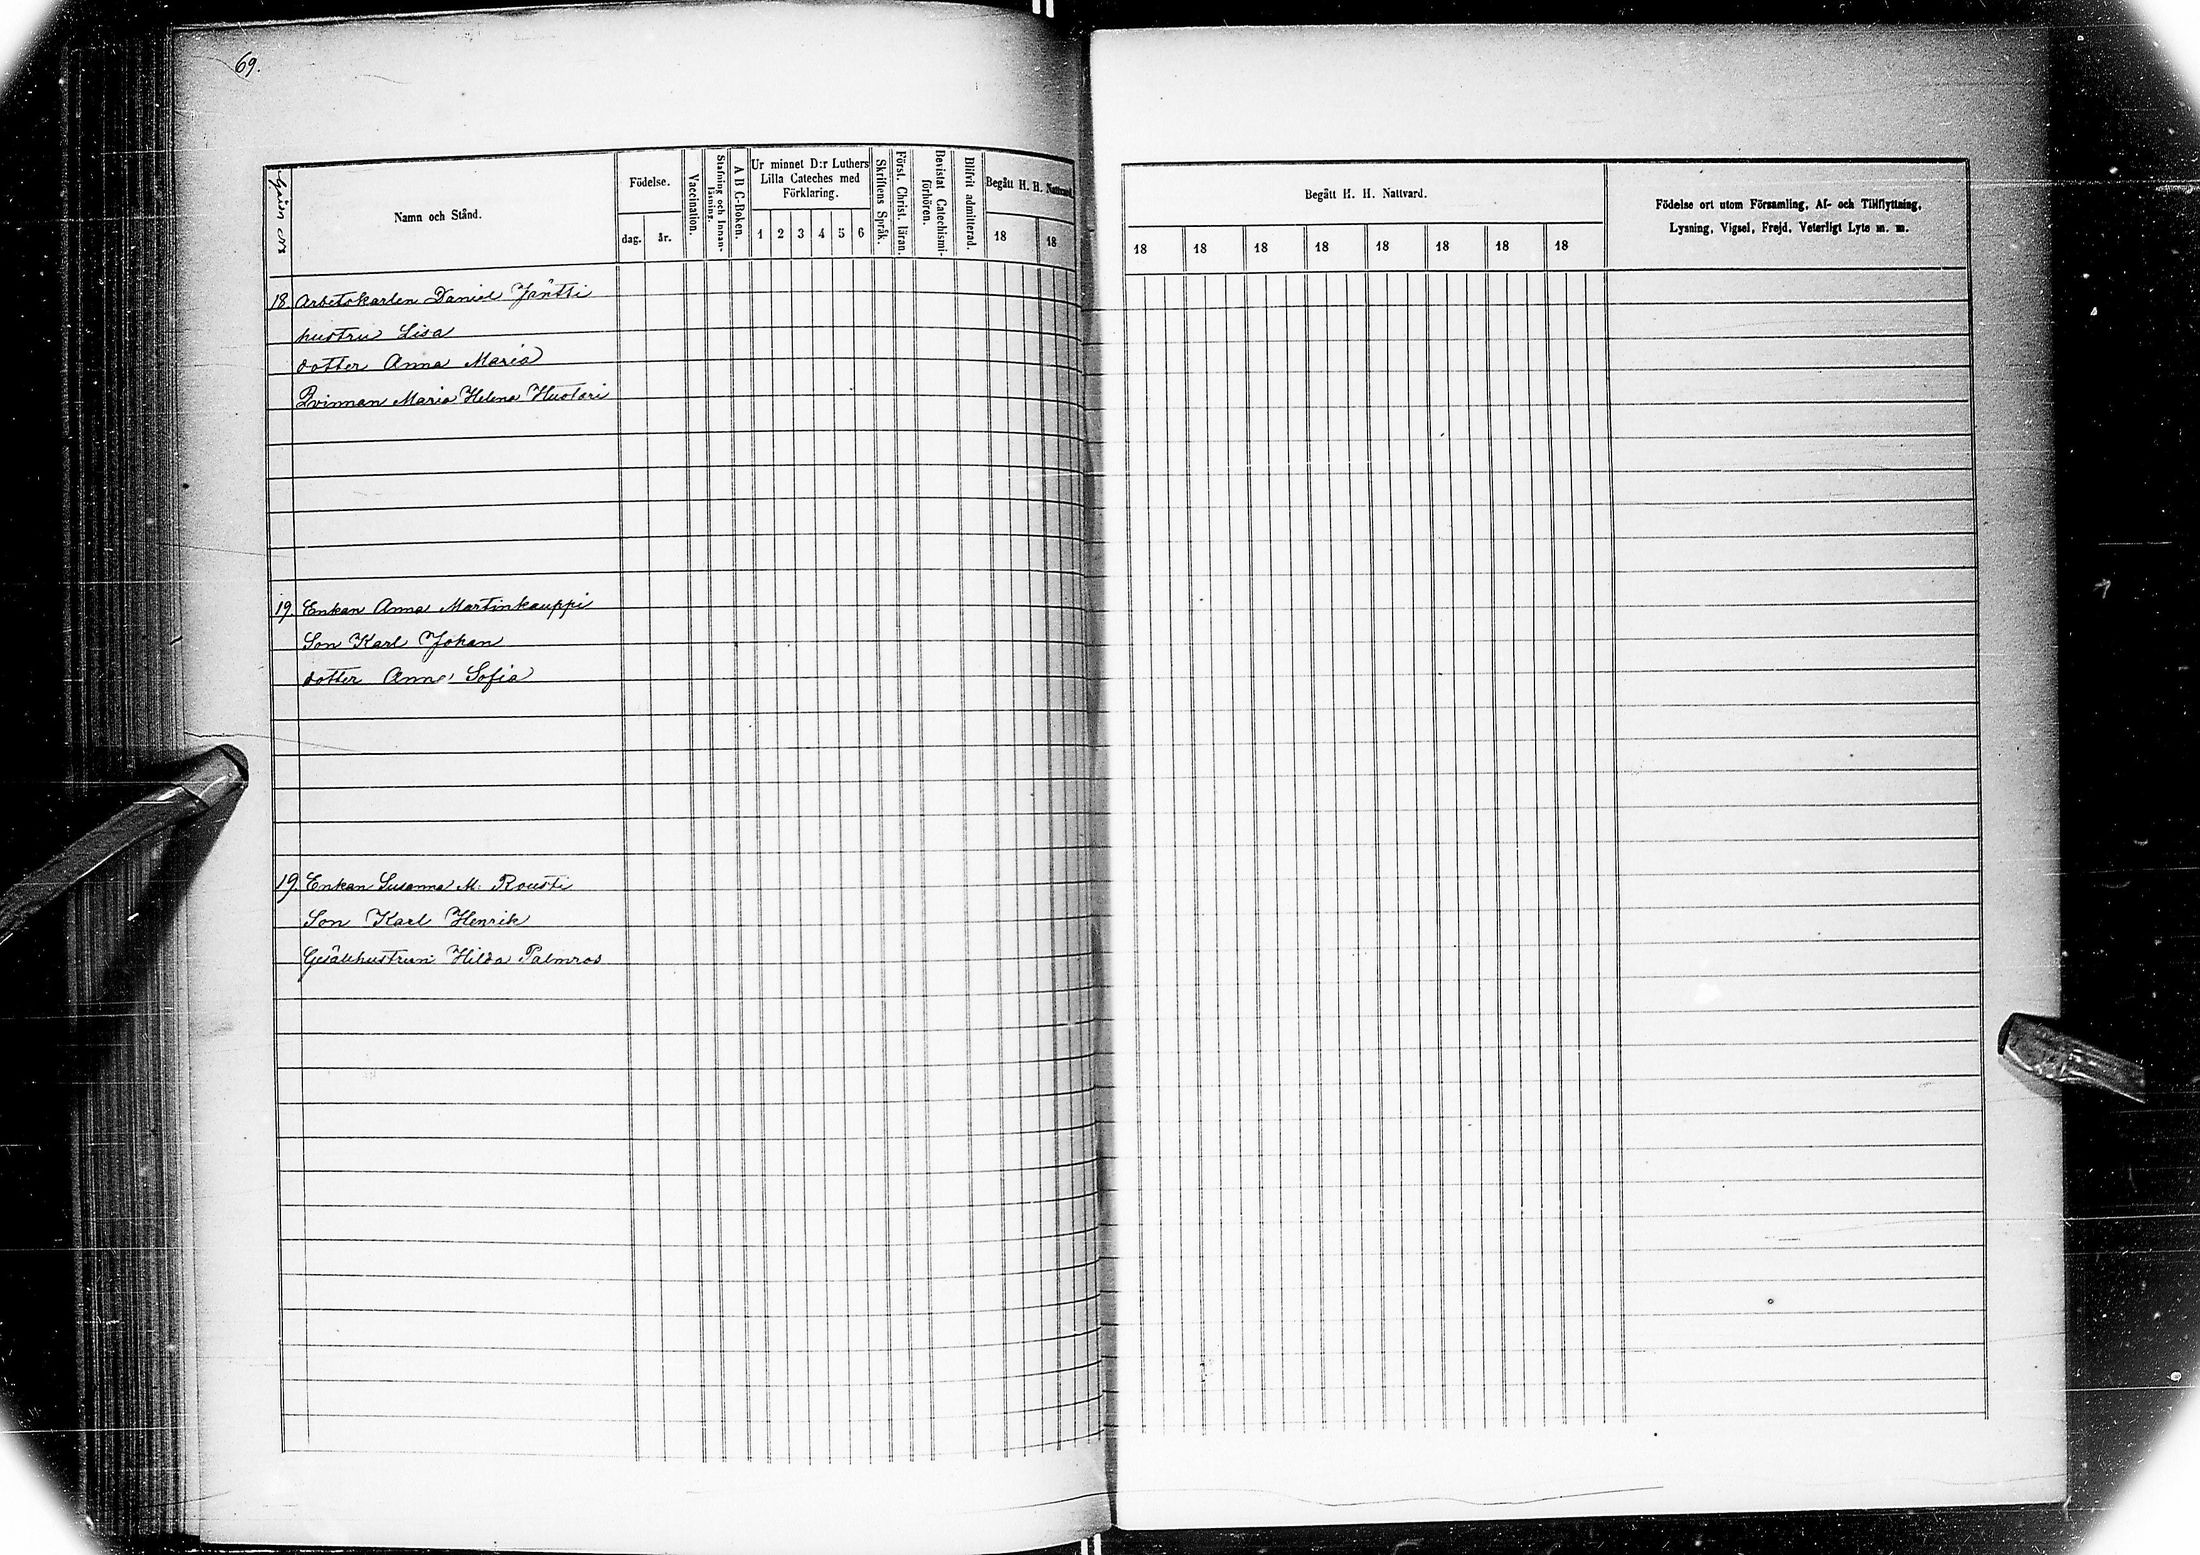 69.
Gård N:o
Namn och Stånd.
Födelse.
dag.
år.
Vaccination.
Stafning och Innan-
läsning.
A B C-Boken.
Ur minnet D:r Luthers
Lilla Cateches med
Förklaring.
1 2 3 4 5 6
Skriftens Språk.
Först. Christ. läran.
Bevistat Catechismi-
förhören.
Blifvit admitterad.
Begått H. H. Nattvard.
18 18
Begått H. H. Nattvard.
18 18 18 18 18 18 18 18
Födelse ort utom Församling, Af- och Tillflyttning,
Lysning, Vigsel, Frejd, Veterligt Lyte m. m.
18 Arbetskarlen Daniel Jäntti
hustru Lisa
dotter Anna Maria
Qvinnan Maria Helena Huotari
19. Enkan Anna Martinkauppi
Son Karl Johan
dotter Anna Sofia
19. Enkan Susanna M. Rousti
Son Karl Henrik
Gesällhustrun Hilda Palmros